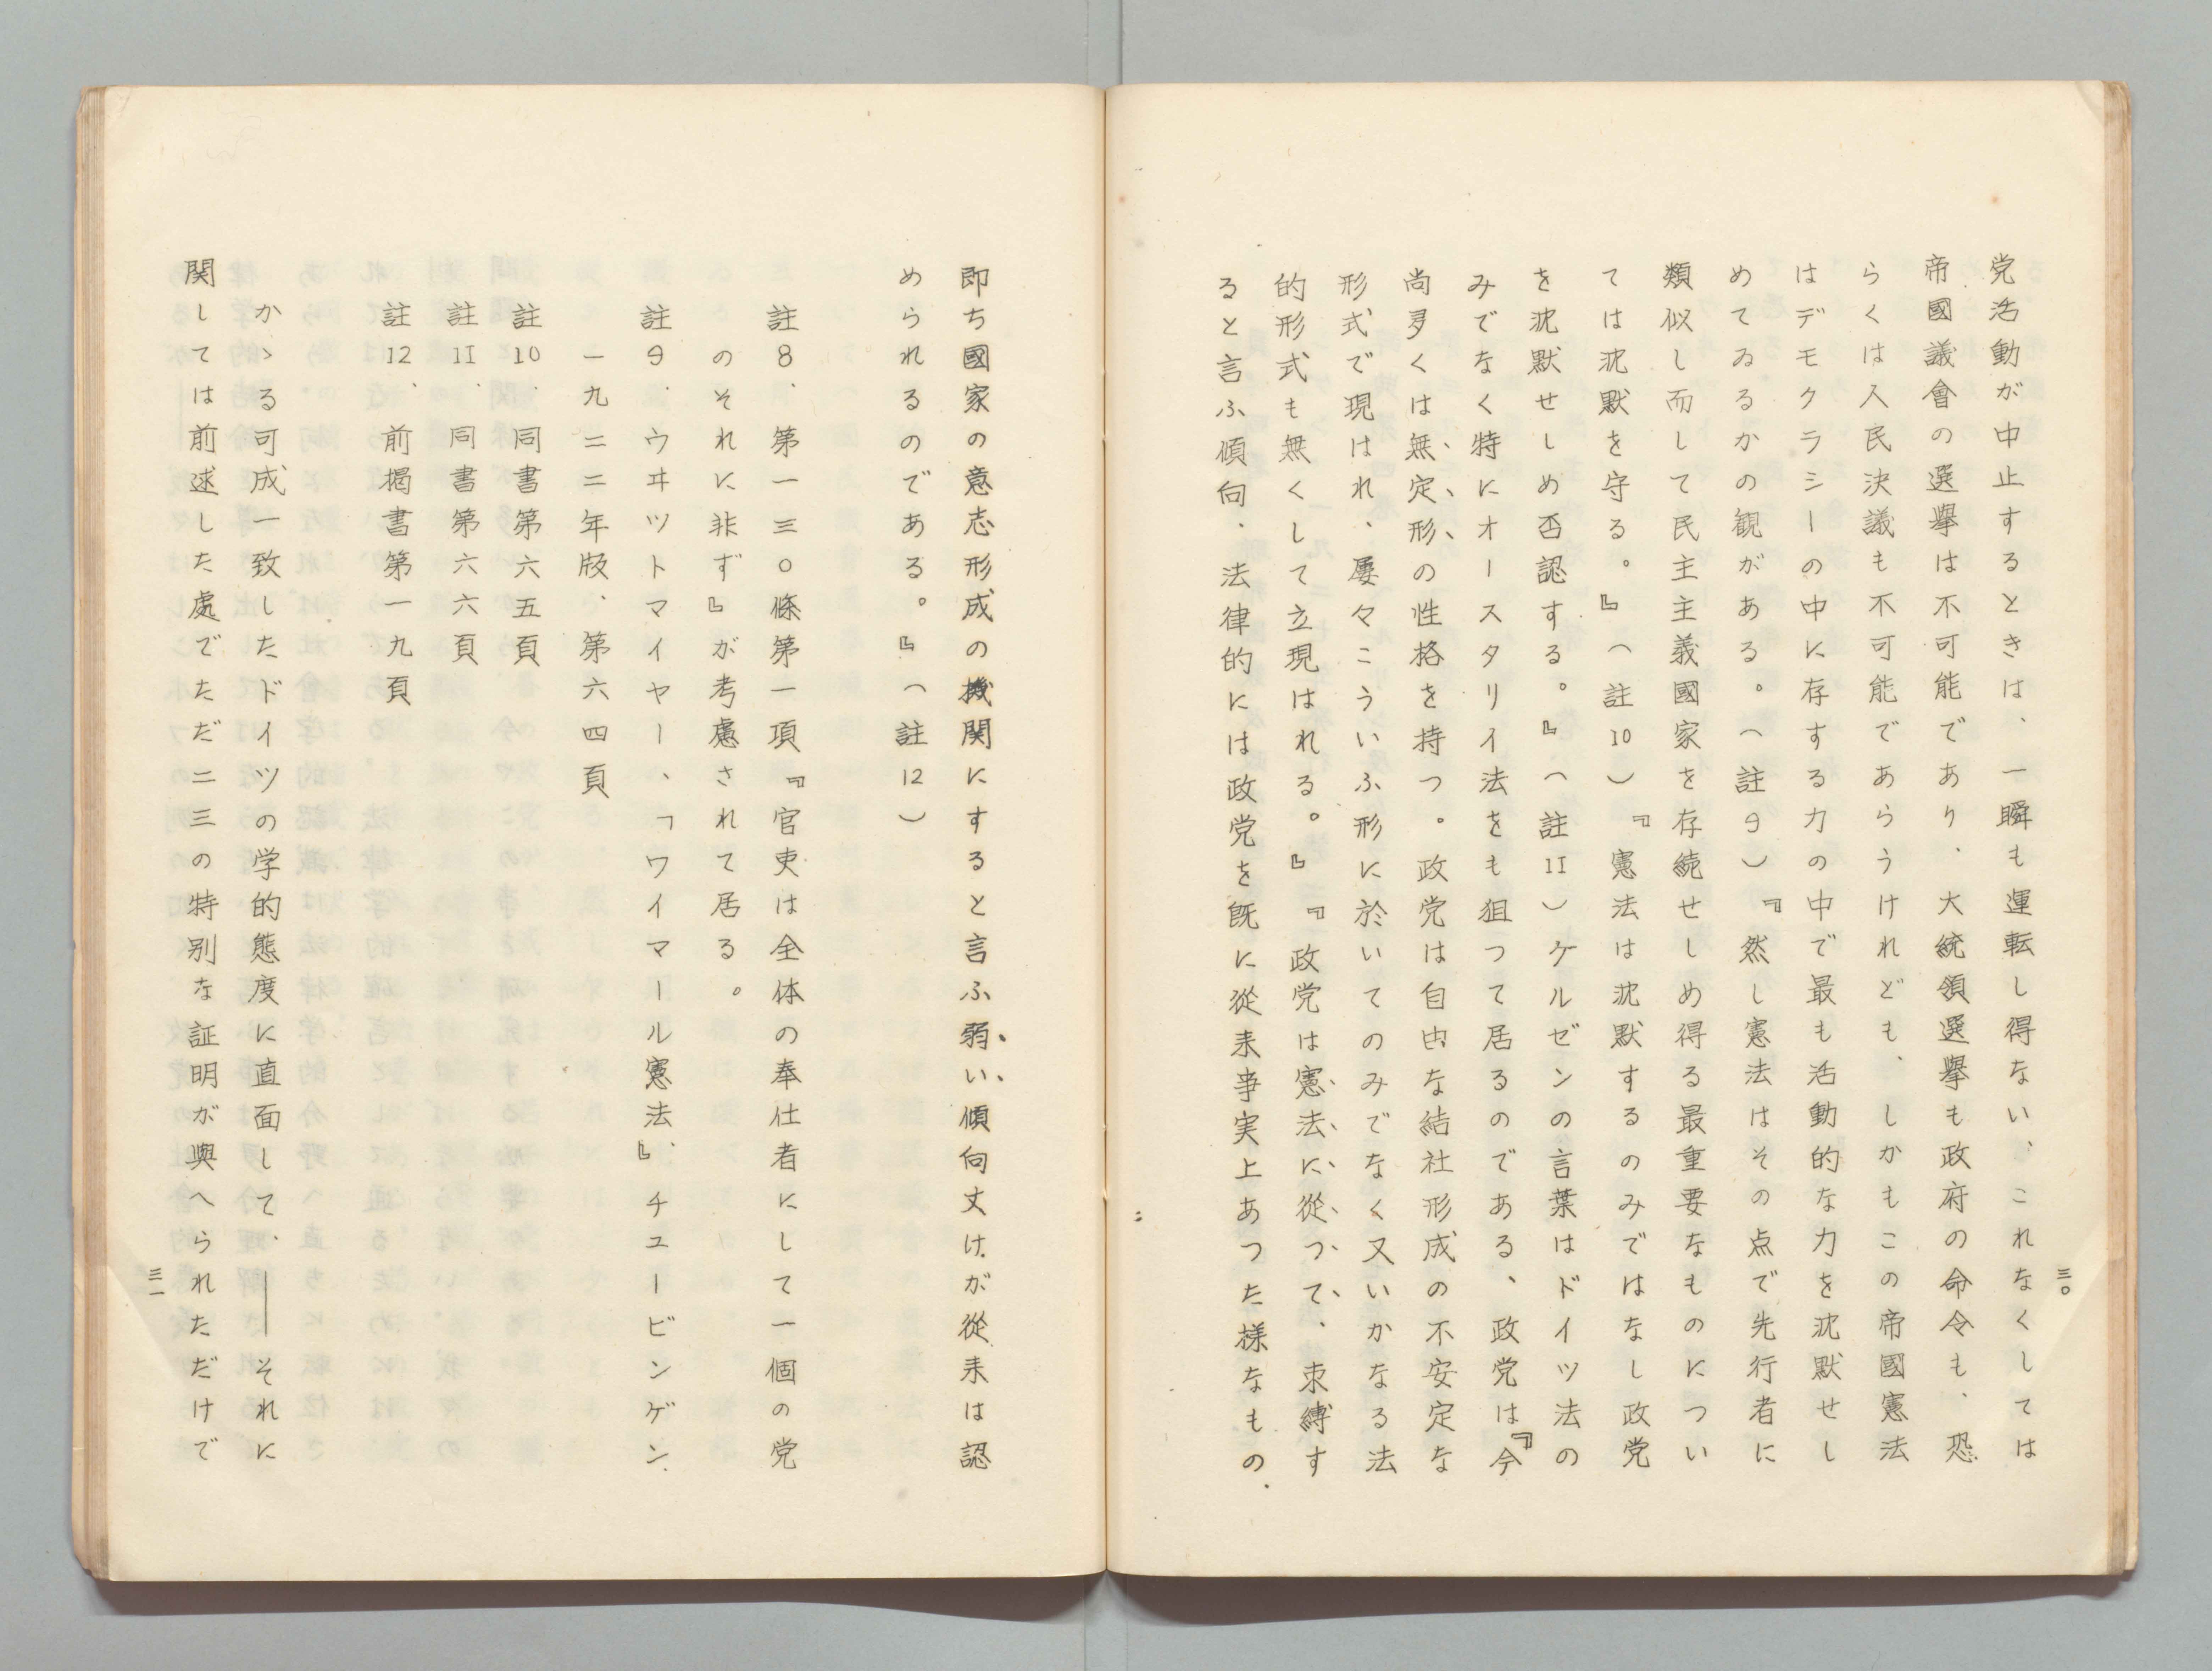 党活動が中止するときは、一瞬も運転し得ない、これなくしては
帝國議會の選擧は不可能であり、大統領選擧も政府の命令も、恐
らくは人民決議も不可能であらうけれども、しかもこの帝國憲法
はデモクラシーの中に存する力の中で最も活動的な力を沈默せし
めてゐるかの観がある。（註9）『然し憲法はその点で先行者に
類似し而して民主主義國家を存続せしめ得る最重要なものについ
ては沈默を守る。』（註10）『憲法は沈默するのみではなし政党
を沈默せしめ否認する。』（註11）ケルゼンの言葉はドイツ法の
みでなく特にオースタリイ法をも狙つて居るのである、政党は『今
尚多くは無定形の性格を持つ。政党は自由な結社形成の不安定な
形式で現はれ、屡々こういふ形に於いてのみでなく又いかなる法
的形式も無くして立現はれる。』『政党は憲法に從つて、束縛す
ると言ふ傾向、法律的には政党を既に從来事実上あつた様なもの、
三〇
即ち國家の意志形成の機関にすると言ふ弱い傾向丈けが從来は認
められるのである。』（註12）
註8、第一三〇條第一項『官吏は全体の奉仕者にして一個の党
のそれに非ず』が考慮されて居る。
註9、ウヰツトマイヤー、「ワイマール憲法』、チュービンゲン、
一九二二年版、第六四頁
註10、同書第六五頁
註11、同書第六六頁
註12、前掲書第一九頁
かゝる可成一致したドイツの学的態度に直面して、――それに
関しては前述した處でただ二三の特別な証明が與へられただけで
三一